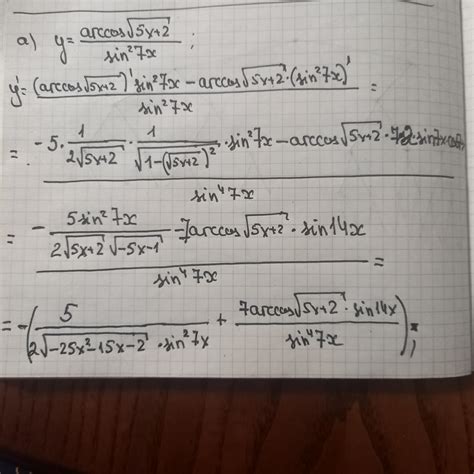 a) y = arccos√(5x+2) / sin²7x ;
y' = ((arccos√(5x+2))' sin²7x − arccos√(5x+2) · (sin²7x)') / sin²7x =
= (−5 · 1/(2√(5x+2)) · 1/√(1−(√(5x+2))²) · sin²7x − arccos√(5x+2) · 7·2·sin7x·cos7x) / sin⁴7x
= (− 5sin²7x/(2√(5x+2) √(−5x−1)) − 7arccos√(5x+2) · sin14x) / sin⁴7x =
= −(5/(2√(−25x²−15x−2) · sin²7x) + 7arccos√(5x+2) · sin14x / sin⁴7x) ;